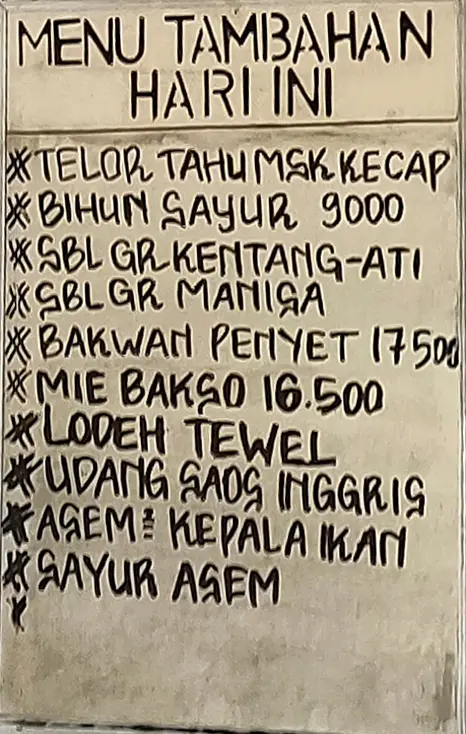 MENU TAMBAHAN
HARI INI
*TELOR TAHU MSK KECAP
*BIHUN SAYUR 9000
*SBL GR KENTANG-ATI
*SBL GR MANISA
*BAKWAN PENYET 17500
*MIE BAKSO 16.500
*LODEH TEWEL
*UDANG SAOS INGGRIS
*ASEM² KEPALA IKAN
*SAYUR ASEM
*